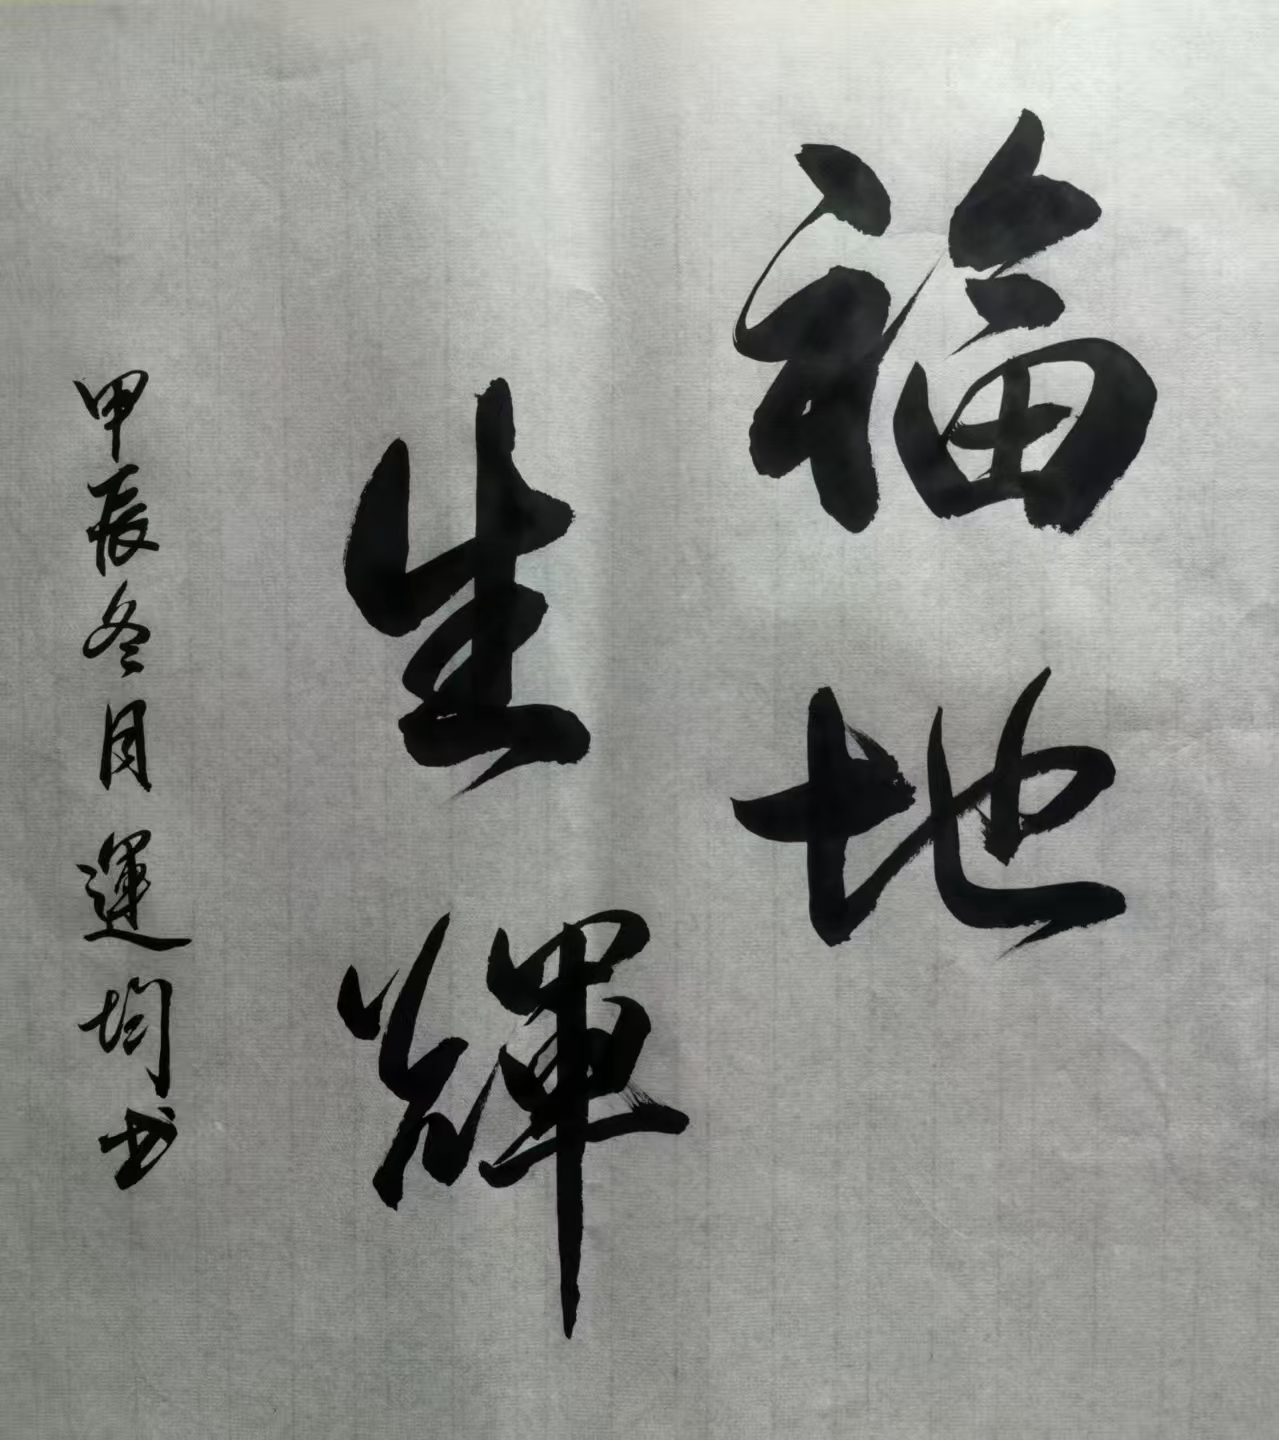 福地
生輝
甲辰冬月運均书